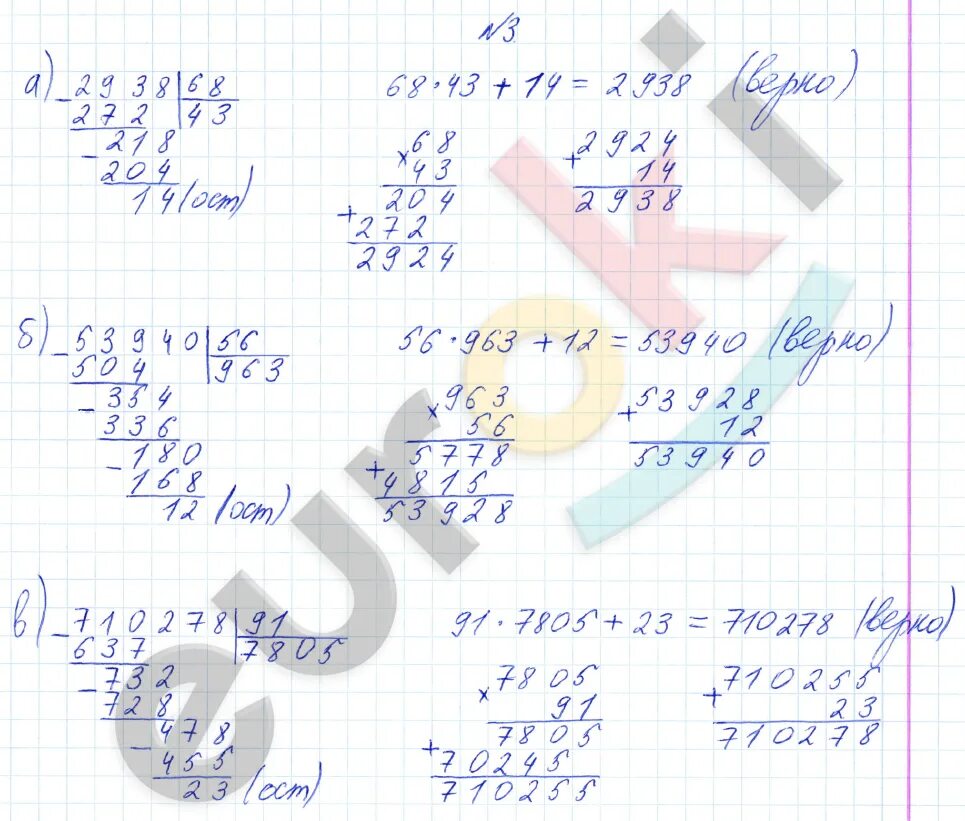 №3.
а) - 2938 | 68
272 | 43
- 218
204
14 (ост)
68 · 43 + 14 = 2938 (верно)
× 68
43
204
+ 272
2924
+ 2924
14
2938
б) - 53940 | 56
504 | 963
- 354
336
- 180
168
12 (ост)
56 · 963 + 12 = 53940 (верно)
× 963
56
5778
+ 4815
53928
+ 53928
12
53940
в) - 710278 | 91
637 | 7805
- 732
728
- 478
455
23 (ост)
91 · 7805 + 23 = 710278 (верно)
× 7805
91
7805
+ 70245
710255
+ 710255
23
710278
euroki